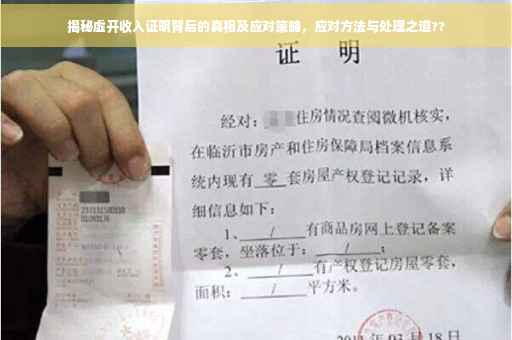 揭秘虚开收入证明背后的真相及应对策略，应对方法与处理之道??
证 明
经对：住房情况查阅微机核实，
在临沂市房产和住房保障局档案信息系
统内现有 零 套房屋产权登记记录，详
细信息如下：
1、 / 有商品房网上登记备案
零套，坐落位于： / ；
2、 / 有产权登记房屋零套，
面积： / 平方米。
2011 年 03 月 18 日